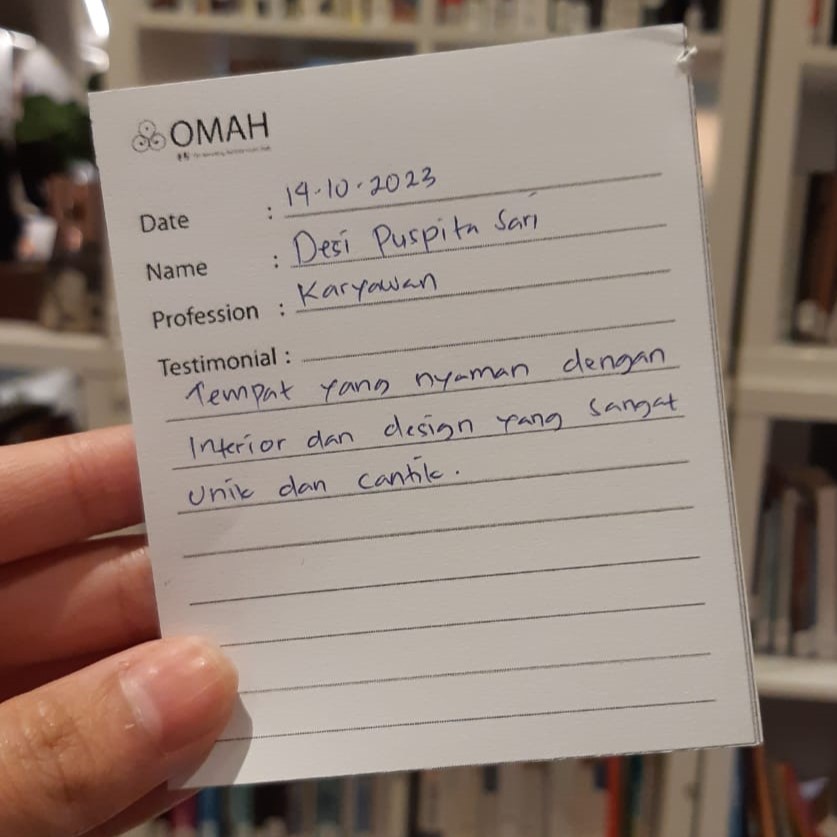 OMAH
Date : 14-10-2023
Name : Desi Puspita Sari
Profession : Karyawan
Testimonial :
Tempat yang nyaman dengan
Interior dan design yang sangat
Unik dan cantik.